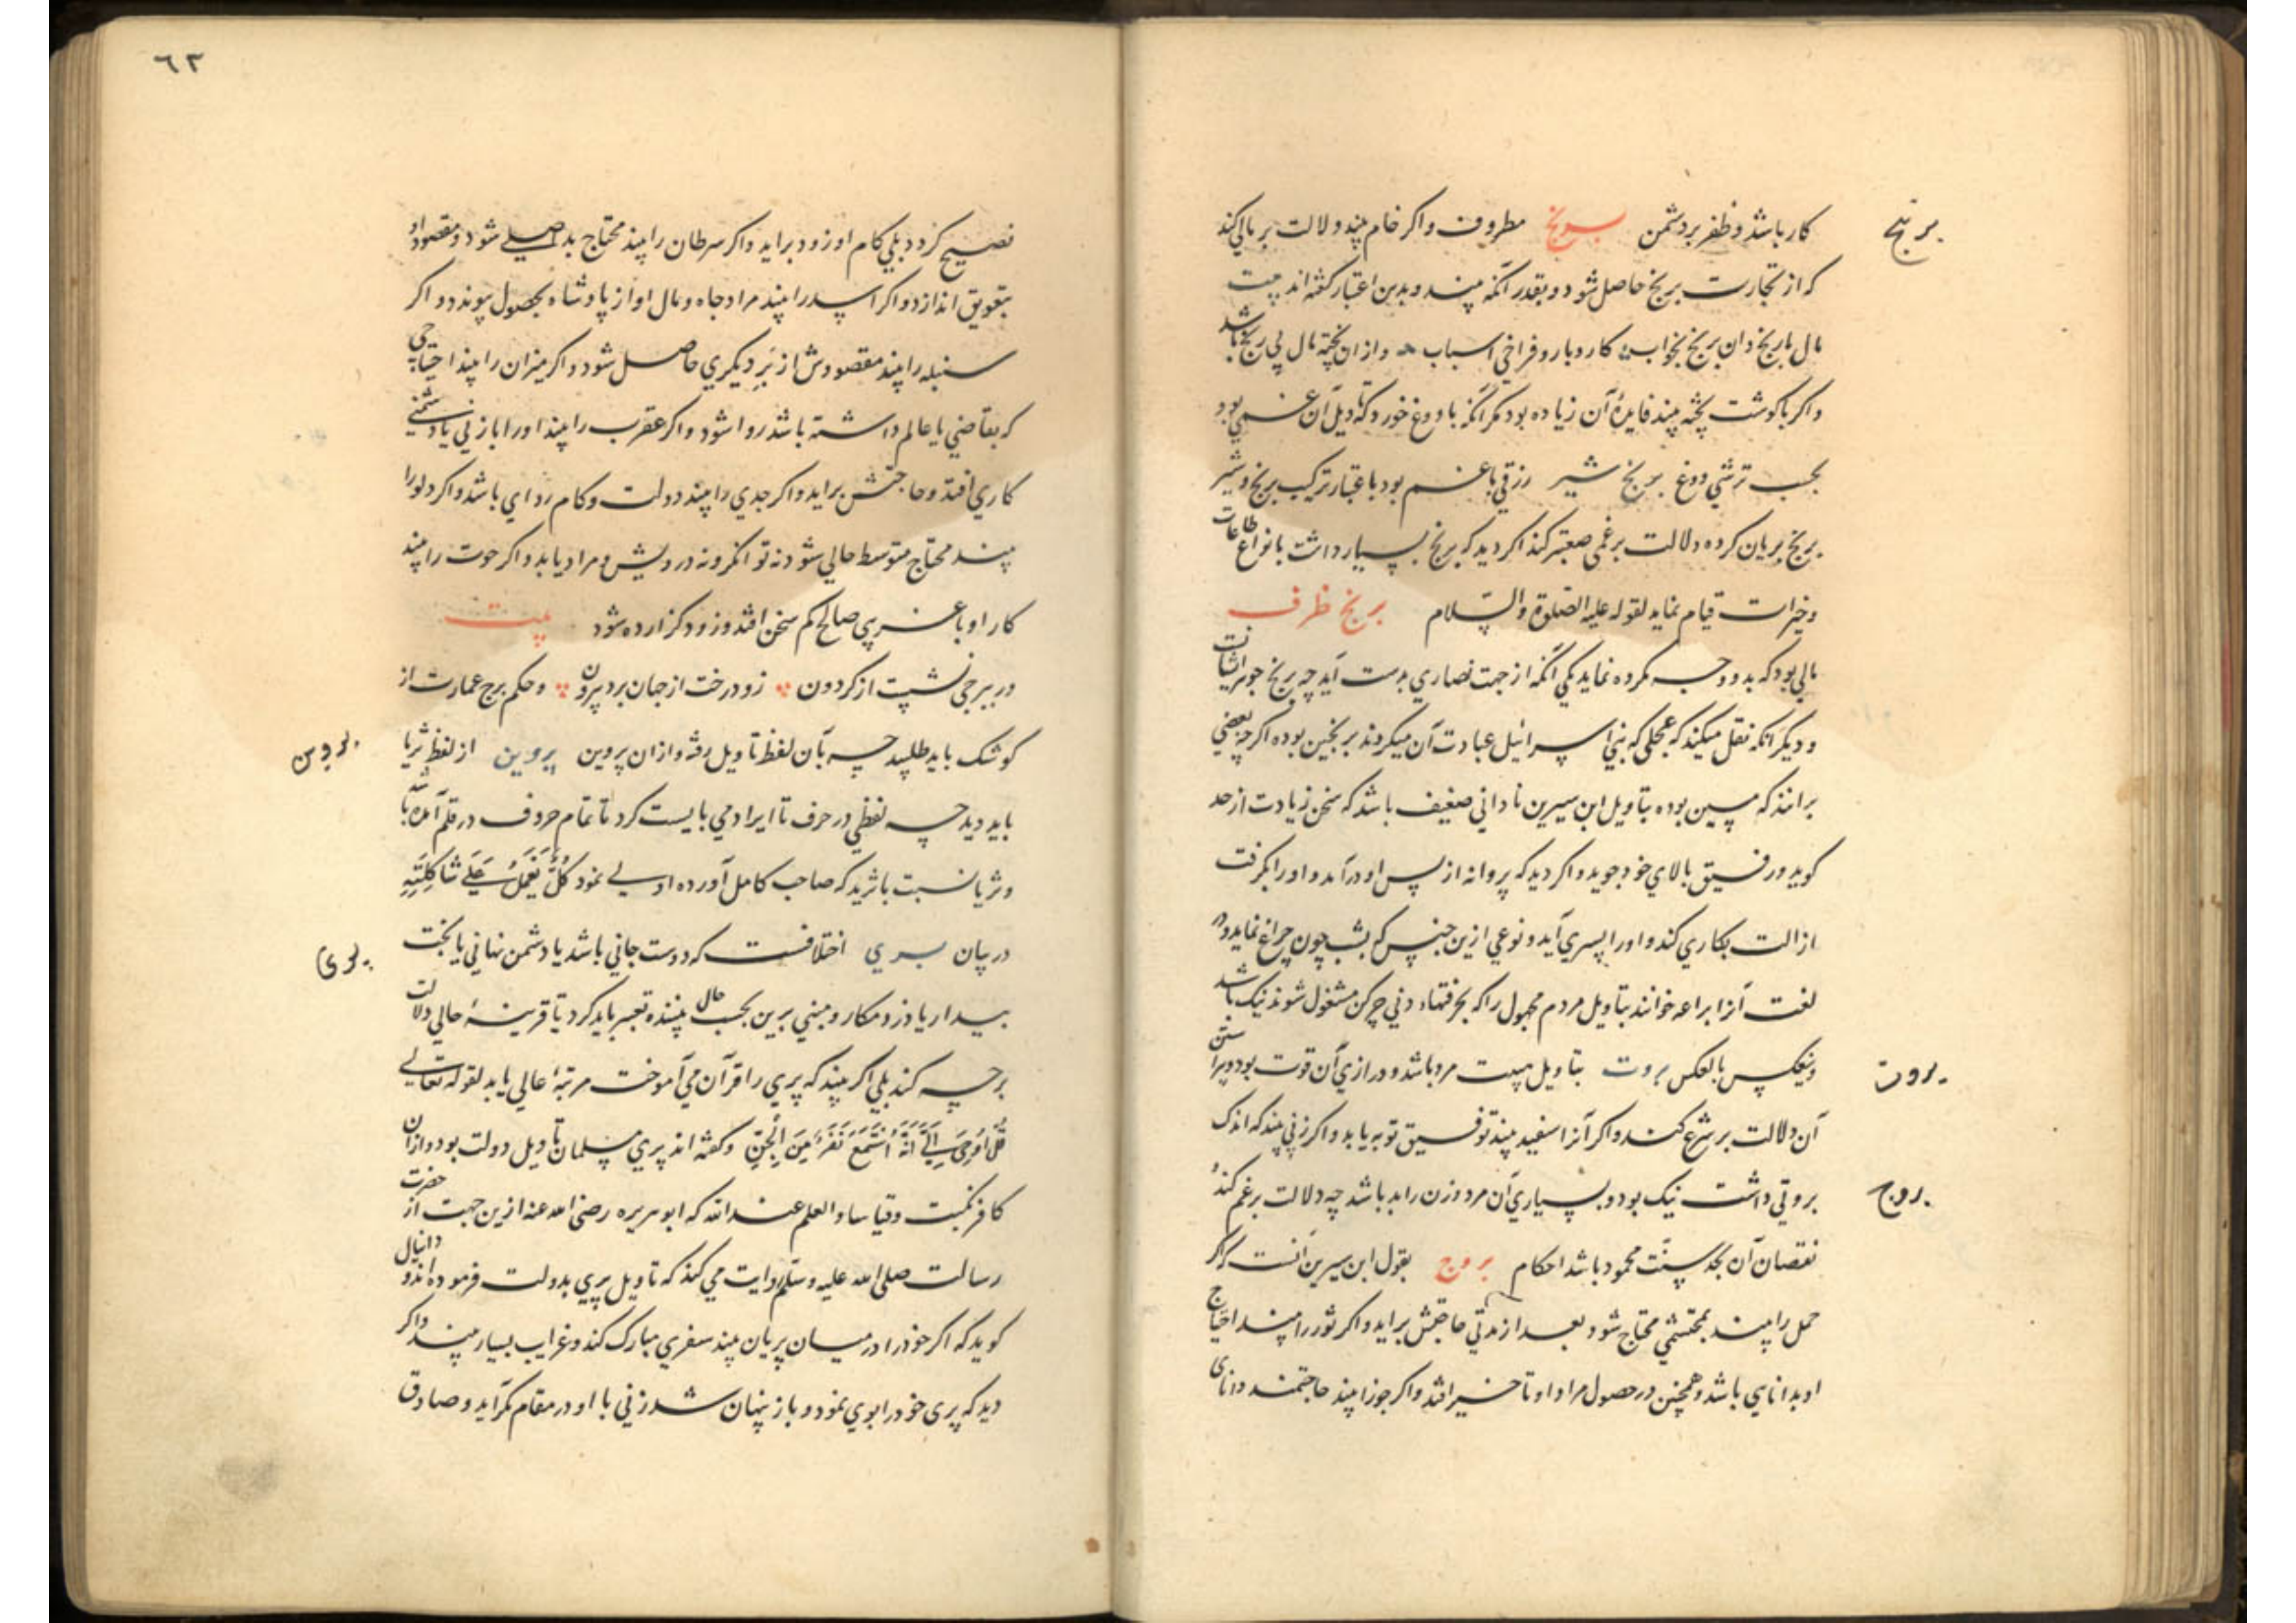 کار باشد و ظفر بر دشمن برنج مطروف و اکر خام بیند دلالت بر مالی کند
برنج
که از تجارت برنج حاصل شود و بقدر آنکه بیند و بدین اعتبار کفته اند بیت
مال بارنج دان برنج بخواب کار و بار و فراخی اسباب و از ان پخته مال بی رنج باشد
و اکر با کوشت پخته بیند فایدهٔ آن زیاده بود مکر آنکه با دوغ خورد که تاویل آن غمی بود
بحسب ترشی دوغ برنج شیر رزقی با غم بود باعتبار ترکیب برنج و شیر
برنج بریان کرده دلالت بر غمی صعبتر کند اکر دید که برنج بسیار داشت بانواع طاعات
و خیرات قیام نماید لقوله علیه الصلوة والسلام برنج ظرف
مالی بود که بدو وجه مکروه نماید یکی آنکه از جهت نصاری بدست آید چه برنج جوهر ایشانست
و دیکر آنکه نقل میکنند که عجلی که بنی اسرائیل عبادت آن میکردند برنجین بوده اکر چه بعضی
برانند که مسین بوده بتاویل ابن سیرین نادانی ضعیف باشد که سخن زیادت از حد
کوید و رفیق بالای خود جوید و اکر دید که پروانه از پس او درآمد و او را بکرفت
ازالت بکاری کند و او را پسری آید و نوعی ازین جنس که بشب چون چراغ نماید و در
لغت آنرا یراعه خوانند بتاویل مردم مجهول را که بحرفتهاء دنی چرکن مشغول شوند نیک باشد
و نیکس بالعکس بروت بتاویل هیبت مرد باشد و درازی آن قوت بود و پیراستن
بروت
آن دلالت بر شرع کند و اکر آنرا سفید بیند توفیق توبه یابد و اکر زنی بیند که اندک
بروتی داشت نیک بود و بسیاری آن مرد و زن را بد باشد چه دلالت بر غم کند
بروج
نقصان آن بحد سنّت محمود باشد احکام بروج بقول ابن سیرین آنست که اکر
حمل را بیند بمحتشمی محتاج شود بعد از مدتی حاجتش براید و اکر ثور را بیند احتیاج
او بدانایی باشد و همچنین در حصول مراد او تاخیر افتد و اکر جوزا بیند حاجتمند دانای
٦٣
فصیح کردد بلی کام او زود براید و اکر سرطان را بیند محتاج بد اصلی شود و مقصود او
بتعویق اندازد و اکر اسد را بیند مراد جاه و مال او از پادشاه بحصول پیوندد و اکر
سنبله را بیند مقصودش از بَرِ دیکری حاصل شود و اکر میزان را بیند احتیاجی
که بقاضی یا عالم داشته باشد روا شود و اکر عقرب را بیند او را با زنی یا دشمنی
کاری افتد و حاجتش براید و اکر جدی را بیند دولت و کام روای باشد و اکر دلو را
بیند محتاج متوسط حالی شود نه توانکر و نه درویش و مراد یابد و اکر حوت را بیند
کار او با عزیزی صالح کم سخن افتد و زود کزارده شود بیت
در برجی نشست از کردون زو درخت از جهان برد بیرون و حکم برج عمارت از
کوشک باید طلبید چه بآن لفظ تاویل رفته و از ان پروین پروین از لفظ ثریا
پروین
باید دید چه لفظی در حرف تا ایراد می بایست کرد تا تمام حروف در قلم آمده باشد
و ثریا نسبت باثرید که صاحب کامل آورده اولی نمود کُلٌّ یَعْمَلُ عَلَی شَاکِلَتِهِ
در بیان پری اختلافست که دوست جانی باشد یا دشمن نهانی یا بخت
پری
بیدار یا دزد مکار و مبنی برین بحسب حال بیننده تعبیر باید کرد تا قرینهٔ حالی دلالت
بر چه کند بلی اکر بیند که پری را قرآن می آموخت مرتبهٔ عالی یابد لقوله تعالی
قُلْ اُوحِیَ اِلَیَّ اَنَّهُ اسْتَمَعَ نَفَرٌ مِنَ الْجِنِّ و کفته اند پری مسلمان تاویل دولت بود و از ان
کافر نکبت و قیاسا والعلم عند الله که ابو هریره رضی الله عنه ازین جهت از حضرت
رسالت صلی الله علیه وسلم روایت می کند که تاویل پری بدولت فرموده اند و دانیال
کوید که اکر خود را در میان پریان بیند سفری مبارک کند و غرایب بسیار بیند و اکر
دید که پری خود را بوی نمود و باز پنهان شد زنی با او در مقام مکر آید و صادق